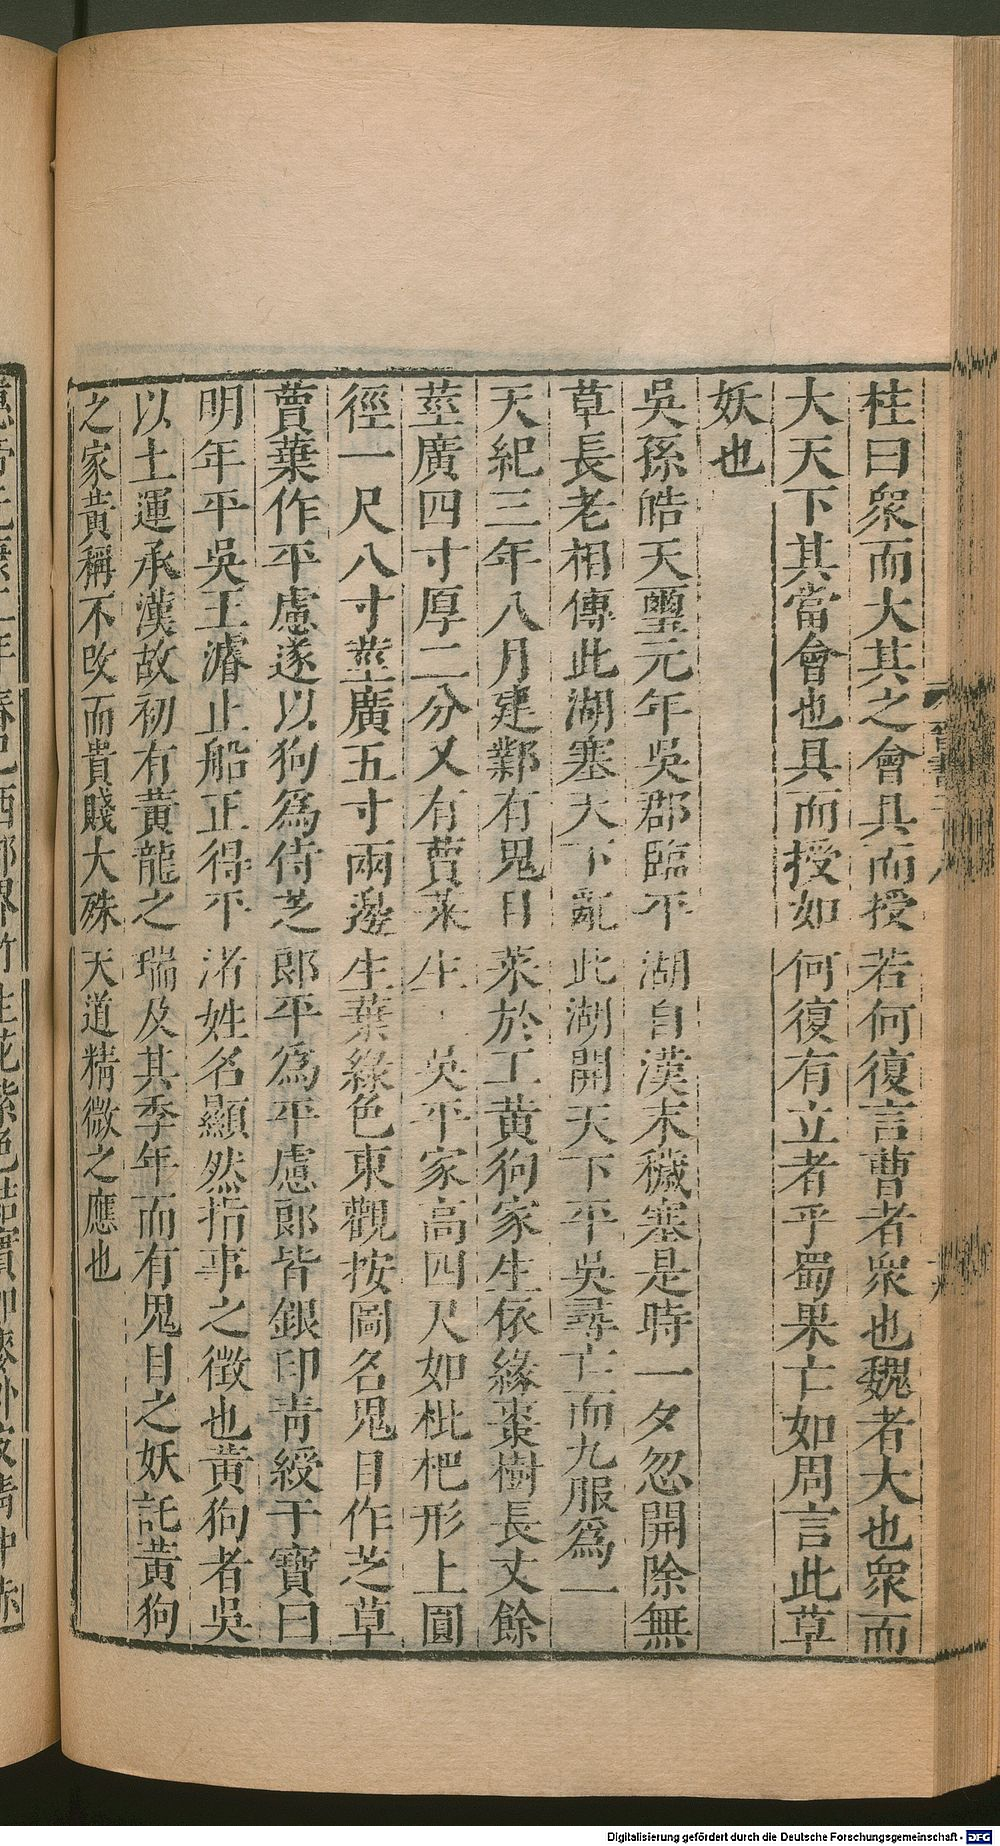 柱曰衆而大其之會具而授若何復言曹者衆也魏者大也衆而
大天下其當會也具而授如何復有立者乎蜀果亡如周言此草
妖也
吳孫皓天璽元年吳郡臨平湖自漢末穢塞是時一夕忽開除無
草長老相傳此湖塞天下亂此湖開天下平吳尋亡而九服爲一
天紀三年八月建鄴有鬼目菜於工黄狗家生依緣棗樹長丈餘
莖廣四寸厚二分又有蕒菜生工吳平家高四尺如枇杷形上圓
徑一尺八寸莖廣五寸兩邊生葉綠色東觀按圖名鬼目作芝草
蕒葉作平慮遂以狗爲侍芝郎平爲平慮郎皆銀印靑綬干寶曰
明年平吳王濬止船正得平渚姓名顯然指事之徴也黄狗者吳
以土運承漢故初有黄龍之瑞及其季年而有鬼目之妖託黄狗
之家黄稱不改而貴賤大殊天道精微之應也
Digitalisierung gefördert durch die Deutsche Forschungsgemeinschaft - DFG